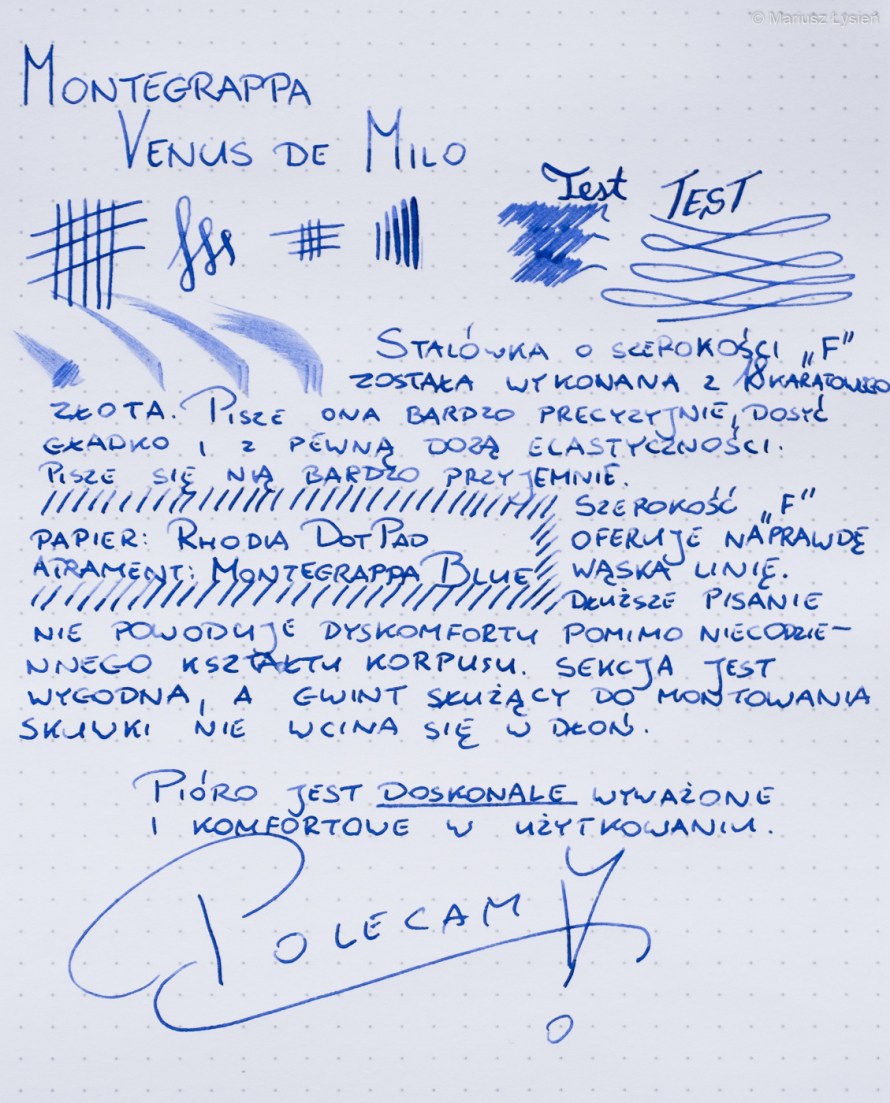 © Mariusz Łysień
MONTEGRAPPA
VENUS DE MILO
Test TEST
STALÓWKA O SZEROKOŚCI „F”
ZOSTAŁA WYKONANA Z 18KARATOWEGO
ZŁOTA. PISZE ONA BARDZO PRECYZYJNIE, DOSYĆ
GŁADKO I Z PEWNĄ DOZĄ ELASTYCZNOŚCI.
PISZE SIĘ NIĄ BARDZO PRZYJEMNIE.
PAPIER: RHODIA DOTPAD
ATRAMENT: MONTEGRAPPA BLUE
SZEROKOŚĆ „F”
OFERUJE NAPRAWDĘ
WĄSKA LINIĘ.
DŁUŻSZE PISANIE
NIE POWODUJE DYSKOMFORTU POMIMO NIECODZIE-
NNEGO KSZTAŁTU KORPUSU. SEKCJA JEST
WYGODNA, A GWINT SŁUŻĄCY DO MONTOWANIA
SKUWKI NIE WCINA SIĘ W DŁOŃ.
PIÓRO JEST DOSKONALE WYWAŻONE
I KOMFORTOWE W UŻYTKOWANIU.
POLECAM!